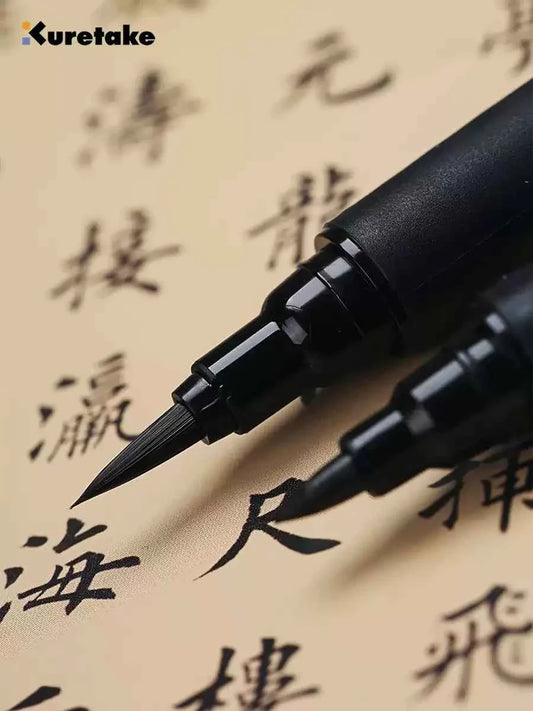 Kuretake
挿飛
元龍尺樓
濤接瀛海